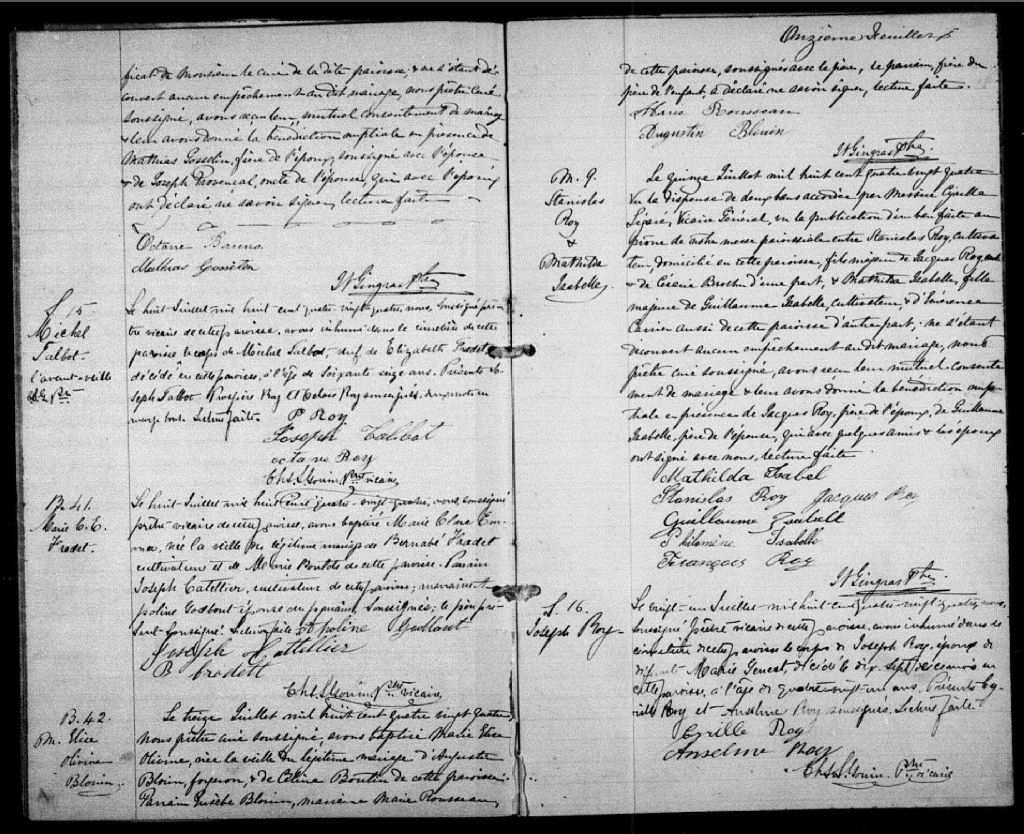 ficat de Monsieur le curé de la dite paroisse, & ne s'étant dé-
couvert aucun empêchement au dit mariage, nous prêtre curé
soussigné, avons reçu leur mutuel consentement de mariage
& leur avons donné la bénédiction nuptiale en présence de
Mathias Gosselin, frère de l'époux, soussigné avec l'épouse
& de Joseph Provencal, oncle de l'épouse, qui avec l'époux
ont déclaré ne savoir signer, lecture faite
Octavie Bruno
Mathias Gosselin
N Gingras Ptre
S. 15
Michel
Talbot
l'avant-veille
Le huit Juillet mil huit cent quatre-vingt quatre, nous, soussigné prê-
tre vicaire de cette paroisse, avons inhumé dans le cimetière de cette
paroisse le corps de Michel Talbot, de Elizabeth Fradet,
décédé en cette paroisse, à l'âge de soixante seize ans. Présents Jo-
seph Talbot Roy & Octave Roy soussignés,
marge bonne. Lecture faite.
P Roy
Joseph Talbot
octave Roy
Chs. Gouin, Ptre vicaire
B. 41.
Marie C. E.
Fradet.
Le huit Juillet mil huit cent quatre-vingt-quatre, nous, soussigné
prêtre vicaire de cette paroisse, avons baptisé Marie Clara Em-
ma, née la veille du légitime mariage de Bernabé Fradet
cultivateur et de Marie de cette paroisse. Parrain
Joseph Catellier, cultivateur de cette paroisse; marraine A-
poline Godbout épouse du parrain, soussignés; le père pré-
sent soussigné. Lecture faite
Apoline Godbout
Joseph Catellier
B fradett
Chs. Gouin, Ptre vicaire
B. 42.
M. Elise
Olivine
Blouin.
Le treize Juillet mil huit cent quatre vingt quatre,
nous prêtre curé soussigné avons baptisé Marie Elise
Olivine, née la veille du légitime mariage d'Augustin
Blouin, forgeron, & de Célina Boutin de cette paroisse.
Parrain Eusèbe Blouin, marraine Marie Rousseau,
Onzième Feuillet
de cette paroisse, soussignés avec le père, le parrain, frère du
père de l'enfant, a déclaré ne savoir signer, lecture faite.
Marie Rousseau
Augustin Blouin
N Gingras Ptre
M. 9.
Stanislas
Roy
&
Mathilda
Isabelle
Le quinze Juillet mil huit cent quatre vingt quatre
Vu la dispense de deux bans accordée par Messire Cyrille
Légaré, Vicaire Général, vu la publication d'un ban faite au
prône de notre messe paroissiale entre Stanislas Roy, cultiva-
teur, domicilié en cette paroisse, fils majeur de Jacques Roy,
& de Césarie Brochu d'une part, & Mathilda Isabelle, fille
majeure de Guillaume Isabelle, cultivateur, & d'Emerence
Carrier aussi de cette paroisse d'autre part; ne s'étant
découvert aucun empêchement au dit mariage, nous
prêtre curé soussigné, avons reçu leur mutuel consente-
ment de mariage & leur avons donné la bénédiction nup-
tiale en présence de Jacques Roy, père de l'époux, de Guillaume
Isabelle, père de l'épouse, qui avec quelques amis & les époux
ont signé avec nous, lecture faite
Mathilda Isabel
Stanislas Roy Jacques Roy
Guillaume Isabell
Philomène Isabelle
François Roy
N Gingras Ptre.
S. 16.
Joseph Roy
Le vingt-un Juillet mil huit cent quatre vingt quatre, nous,
soussigné prêtre vicaire de cette paroisse, avons inhumé dans le
cimetière de cette paroisse le corps de Joseph Roy, époux de
défunte Marie Genest, décédé le dix-sept de ce mois en
cette paroisse, à l'âge de quatre vingt un ans. Présents Cy-
rille Roy et Anselme Roy soussignés. Lecture faite
Cyrille Roy
Anselme Roy
Chs. Gouin. Ptre vicaire